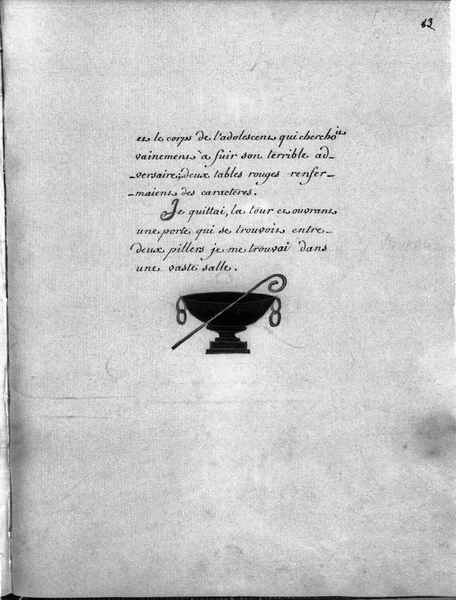 13
et le corps de l'adolescent qui cherchoit
vainement à fuir son terrible ad-
-versaire; deux tables rouges renfer-
-maient des caractères.
Je quittai, la tour et ouvrant
une porte qui se trouvoit entre-
deux pilliers je me trouvai dans
une vaste salle.